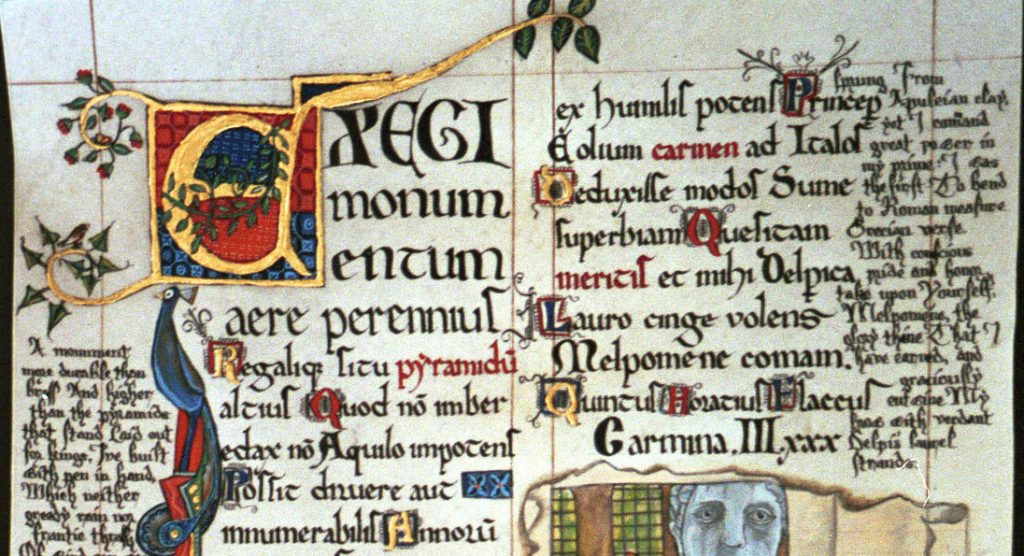 EXEGI
monum
entum
aere perennius
Regaliq; situ pyramidū
altius Quod nō imber
edax nō Aquilo impotens
Possit diruere aut
innumerabilis Annorū
A monument
more durable than
brass And higher
than the pyramids
that stand laid out
for kings. I've built
with pen in hand,
Which neither
greedy rain nor
frantic thrash
Of wind
ex humilis potens Princeps
Eolium carmen ad Italos
Deduxisse modos Sume
superbiam Quesitam
meritis et mihi Delpica
Lauro cinge volens
Melpomene comam.
Quintus Horatius Flaccus
Carmina.III.xxx
sprung From
Apuleian clay,
& yet I comand
great power in
my prime: I was
the first To bend
to Roman measure
Grecian verse.
With conscious
pride and honor
take upon Yourself,
Melpomene, the
glory thine That I
have earned, and
graciously
entwine My
head with verdant
Delpis laurel
strands